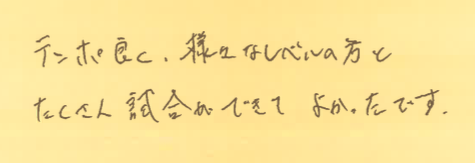 テンポ良く、様々なレベルの方と
たくさん試合ができて よかったです.